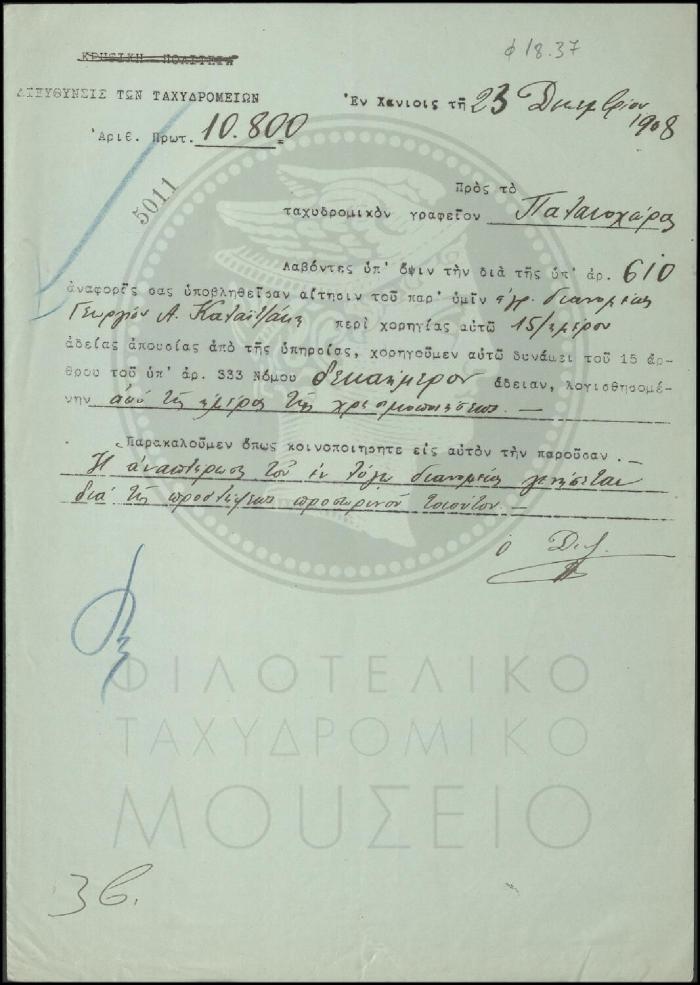 φ 18.37
ΚΡΗΤΙΚΗ ΠΟΛΙΤΕΙΑ
ΔΙΕΥΘΥΝΣΙΣ ΤΩΝ ΤΑΧΥΔΡΟΜΕΙΩΝ
Ἐν Χανίοις τῇ 23 Δεκεμβρίου
1908
Ἀριθ. Πρωτ. 10.800
5011
Πρὸς τὸ
ταχυδρομικὸν γραφεῖον
Λαβόντες ὑπ' ὄψιν τὴν διὰ τῆς ὑπ' ἀρ. 610
ἀναφορᾶς σας ὑποβληθεῖσαν αἴτησιν τοῦ παρ' ὑμῖν ἀγρ. διανομέως
Γεωργίου Α. περὶ χορηγίας αὐτῷ 15/ημέρου
ἀδείας ἀπουσίας ἀπὸ τῆς ὑπηρσίας, χορηγοῦμεν αὐτῷ δυνάμει τοῦ 15 ἄρ-
θρου τοῦ ὑπ' ἀρ. 333 Νόμου δεκαήμερον ἄδειαν, λογισθησομέ-
νην ἀπὸ τῆς ἡμέρας τῆς χρησιμοποιήσεως.—
Παρακαλοῦμεν ὅπως κοινοποιήσητε εἰς αὐτὸν τὴν παροῦσαν.—
Ἡ ἀναπλήρωσις τοῦ ἐν λόγῳ διανομέως γενήσεται
διὰ τῆς προσλήψεως προσωρινοῦ τοιούτου.—
ὁ
ΦΙΛΟΤΕΛΙΚΟ
ΤΑΧΥΔΡΟΜΙΚΟ
ΜΟΥΣΕΙΟ